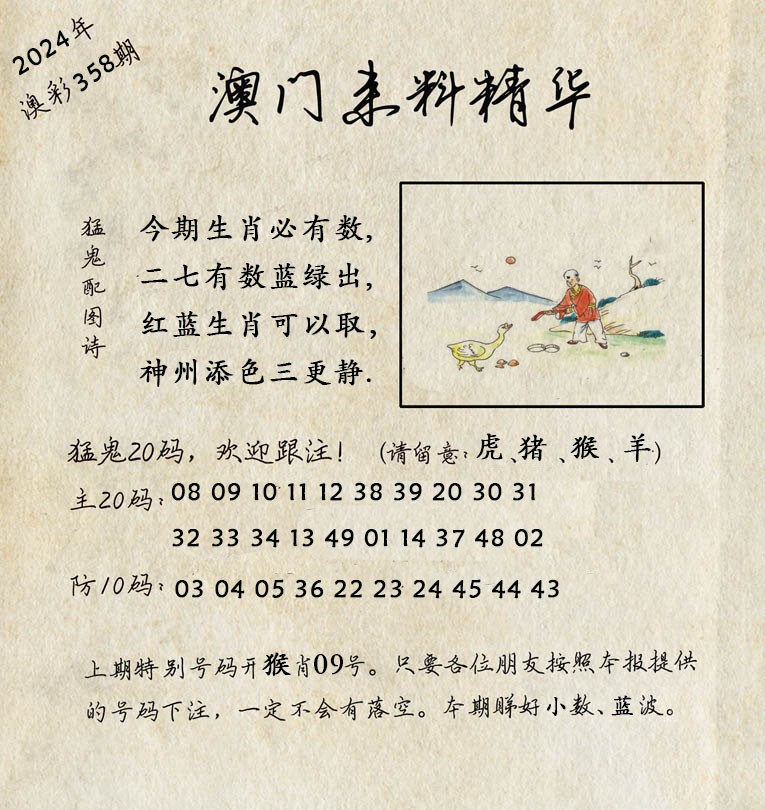 2024年
澳彩358期
澳门来料精华
猛鬼配图诗
今期生肖必有数,
二七有数蓝绿出,
红蓝生肖可以取,
神州添色三更静.
猛鬼20码，欢迎跟注！（请留意：虎、猪、猴、羊）
主20码：08 09 10 11 12 38 39 20 30 31
32 33 34 13 49 01 14 37 48 02
防10码：03 04 05 36 22 23 24 45 44 43
上期特别号码开猴肖09号。只要各位朋友按照本报提供
的号码下注，一定不会有落空。本期睇好小数、蓝波。